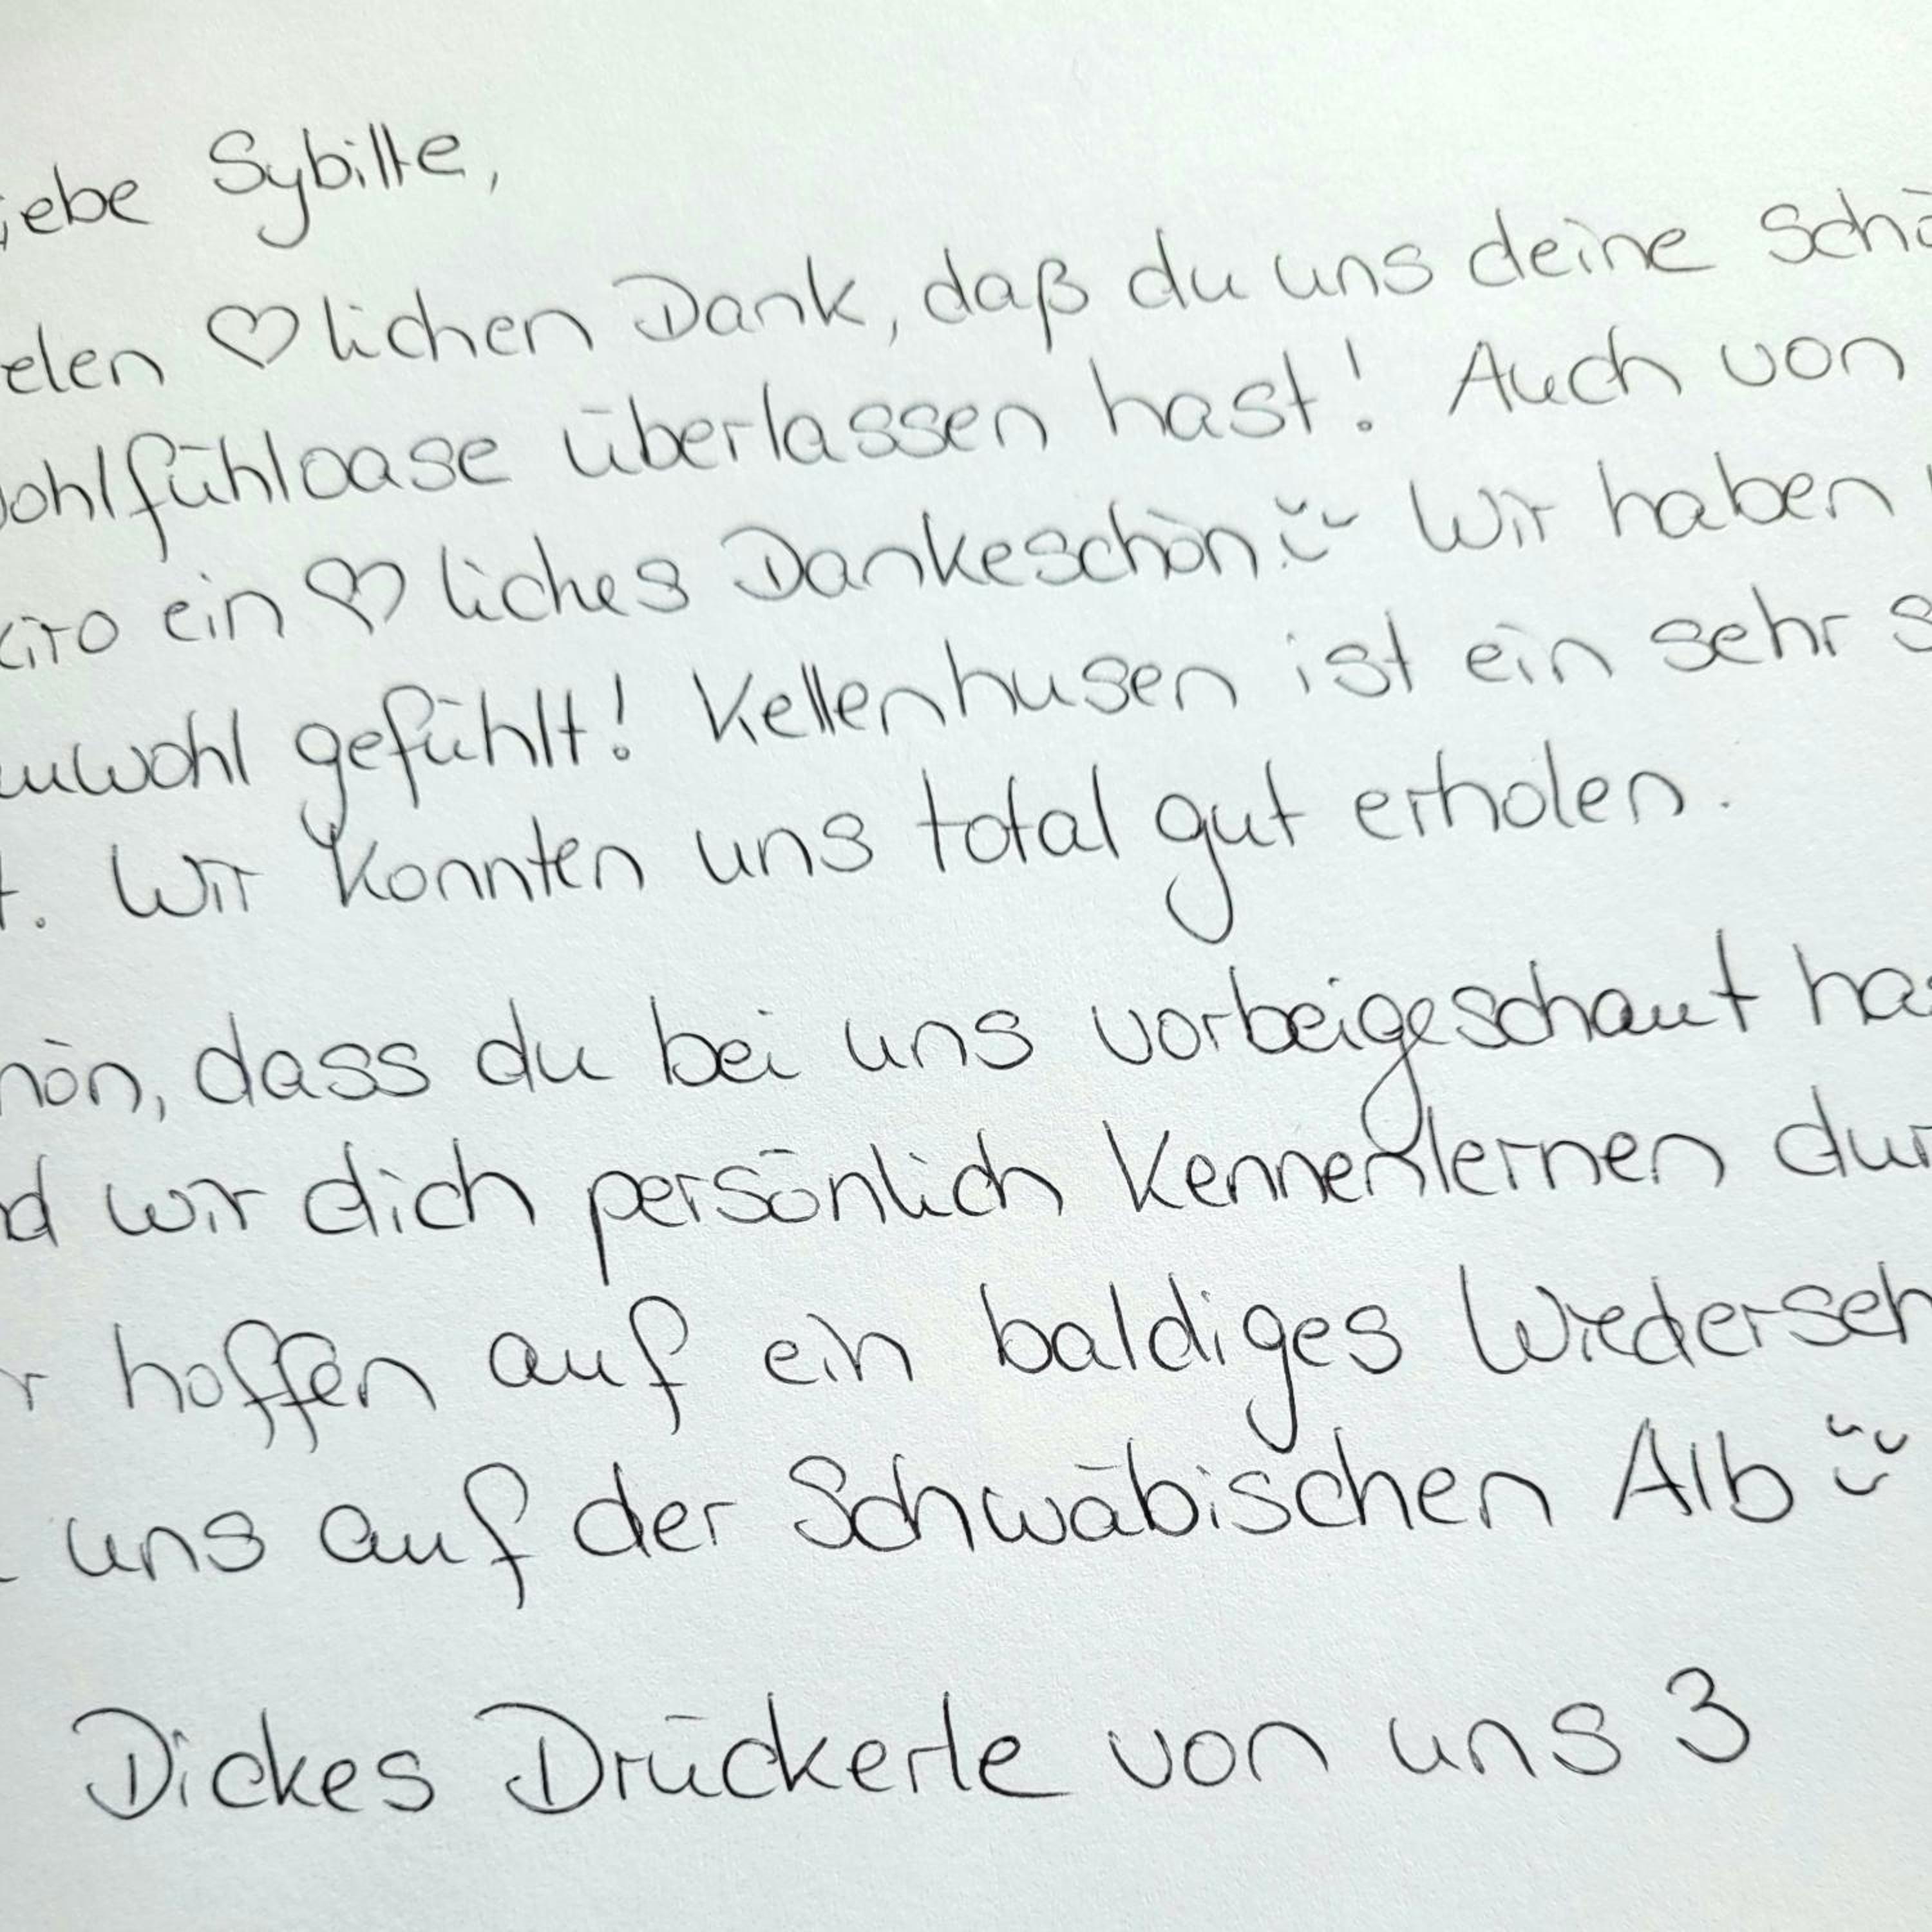 iebe Sybille,
elen ♡lichen Dank, daß du uns deine Schö
ohlfühloase überlassen hast! Auch von
kiro ein ♡liches Dankeschön Wir haben
uwohl gefühlt! Kellenhusen ist ein sehr s
t. Wir konnten uns total gut erholen.
hön, dass du bei uns vorbeigeschaut has
d wir dich persönlich kennenlernen dur
r hoffen auf ein baldiges Wiederseh
uns auf der Schwäbischen Alb
Dickes Drückerle von uns 3